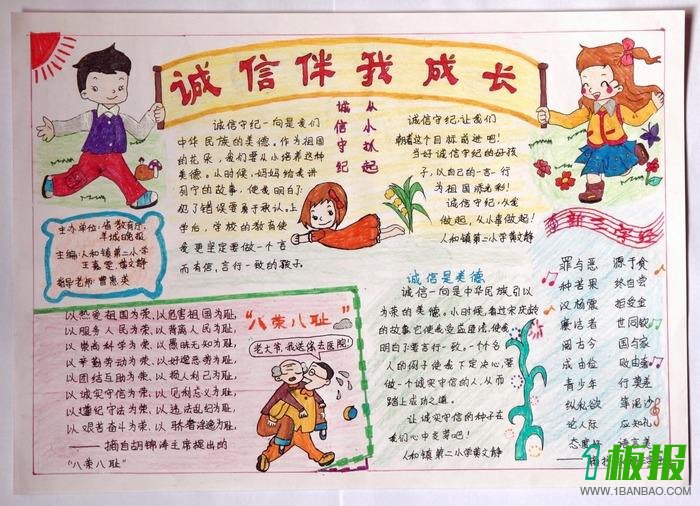 诚信伴我成长
诚信守纪
从小做起
诚信守纪一向是我们
中华民族的美德。作为祖国
的花朵，我们要从小培养这种
美德。小时候，妈妈给我讲
列宁的故事，使我明白了
犯了错误要勇于承认。上
学后，学校的教育使
我更坚定要做一个言
而有信，言行一致的孩子。
诚信守纪，让我们
朝着这个目标前进吧！
当好诚信守纪的好孩
子，以自己的一言一行
为祖国添光彩！
诚信守纪，从我
做起，从小事做起！
人和镇第二小学黄文静
主办单位：省教育厅、
羊城晚报
主编：人和镇第二小学
黄文静
指导老师：曹惠英
以热爱祖国为荣、以危害祖国为耻，
以服务人民为荣、以背离人民为耻，
以崇尚科学为荣、以愚昧无知为耻，
以辛勤劳动为荣、以好逸恶劳为耻，
以团结互助为荣、以损人利己为耻，
以诚实守信为荣、以见利忘义为耻，
以遵纪守法为荣、以违法乱纪为耻，
以艰苦奋斗为荣、以骄奢淫逸为耻。
——摘自胡锦涛主席提出的
“八荣八耻”
“八荣八耻”
老大爷，我送你去医院！
诚信是美德
诚信一向是中华民族引以
为荣的美德。小时候，看过宋庆龄
的故事，它使我受益匪浅，使我
明白了要言行一致。一个个名
人的例子使我下定决心，要
做一个诚实守信的人，从而
踏上成功之道。
让诚实守信的种子在
我们心中发芽吧！
人和镇第二小学黄文静
三字经
罪与恶 源于贪
种苦果 终自会
汉杨震 拒受金
廉洁者 世同钦
阅古今 国与家
成由俭 败由奢
青少年 行莫差
纵私欲
论人际 应知礼
态度好 语言美
1板报
WWW.1BANBAO.COM